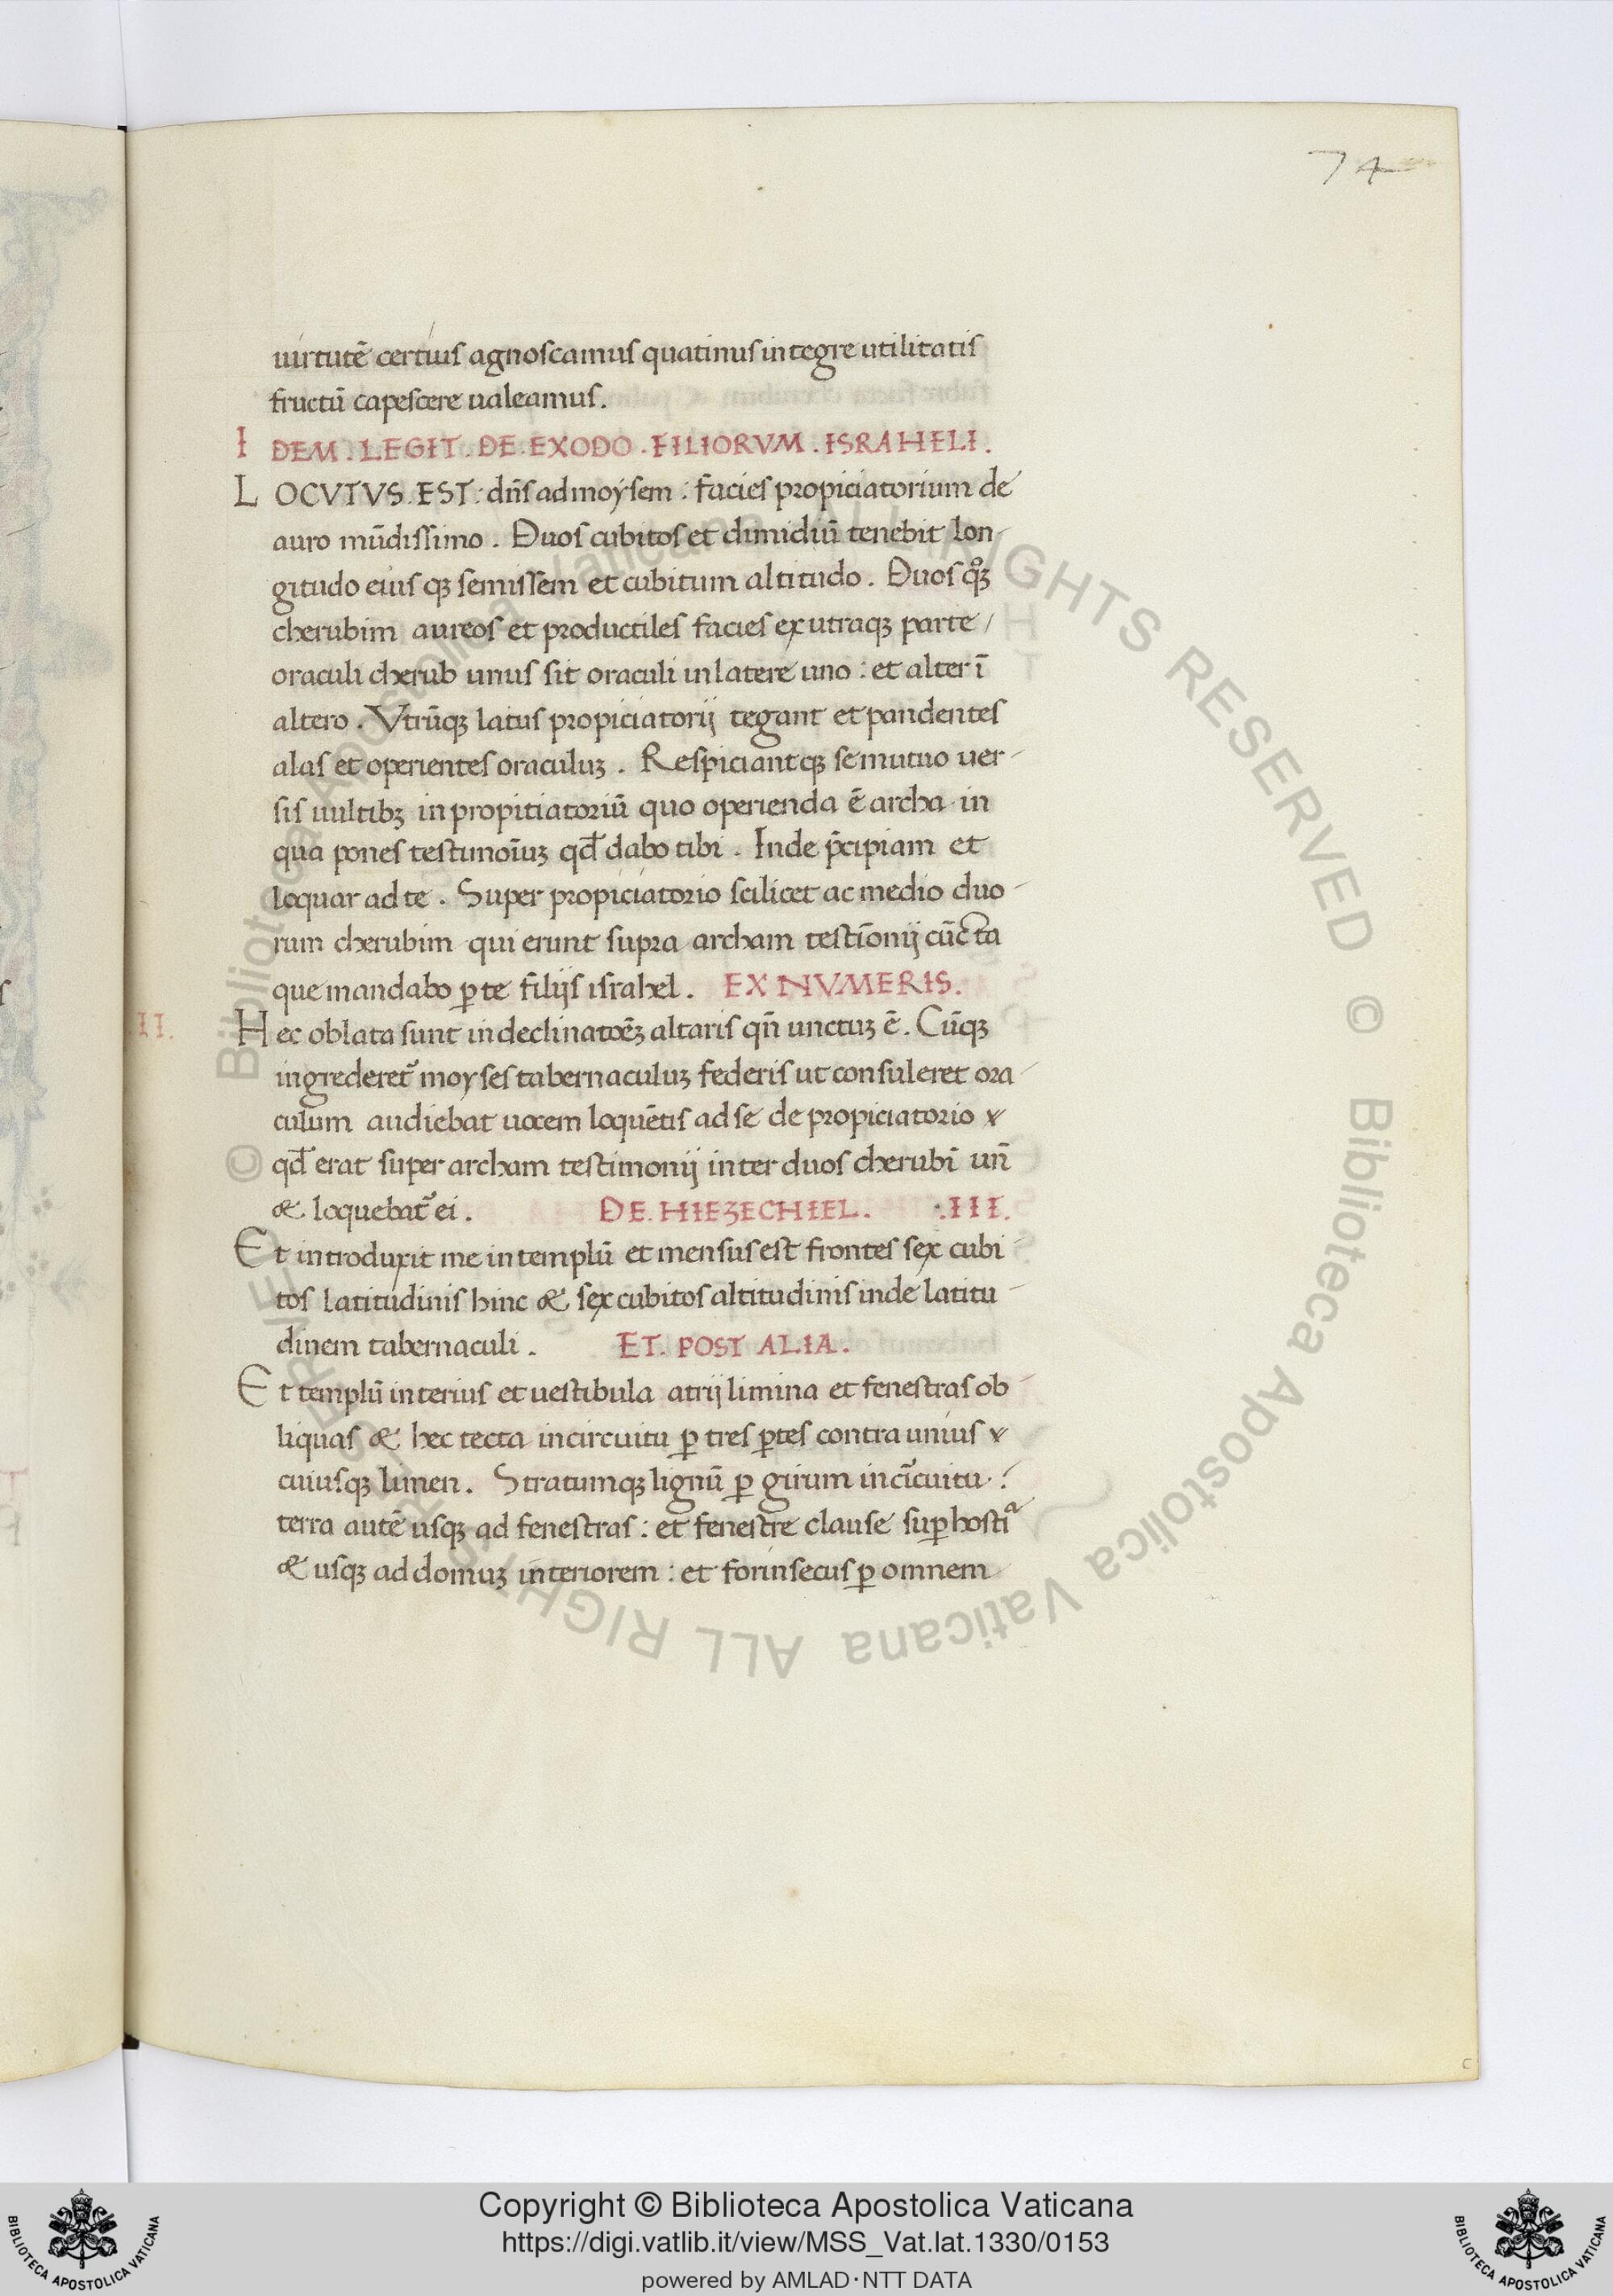 74
uirtutē certius agnoscamus quatinus integre utilitatis
fructū capescere ualeamus.
I DEM. LEGIT. DE. EXODO. FILIORVM. ISRAHELI.
L OCVTVS. EST: dn̄s ad moysem: facies propiciatorium de
auro mūdissimo. Duos cubitos et dimidiū tenebit lon-
gitudo eius qꝫ semissem et cubitum altitudo. Duos qꝫ
cherubim aureos et productiles facies ex utraqꝫ parte /
oraculi cherub unus sit oraculi in latere uno: et alter ī
altero. Vtrūqꝫ latus propiciatorij tegant et pandentes
alas et operientes oraculuꝫ. Respiciantqꝫ se mutuo uer-
sis uultibꝫ in propitiatoriū quo operienda ē archa in
qua pones testimoīuꝫ qd̄ dabo tibi. Inde p̄cipiam et
loquar ad te. Super propiciatorio scilicet ac medio duo-
rum cherubim qui erunt supra archam testīonij cūcta
que mandabo ꝑ te filijs israhel. EX NVMERIS.
II.
Hec oblata sunt in declinatoēꝫ altaris qn̄ unctuꝫ ē. Cūqꝫ
ingrederet᷑ moyses tabernaculuꝫ federis ut consuleret ora-
culum audiebat uocem loquētis ad se de propiciatorio
qd̄ erat super archam testimonij inter duos cherubī un̄
& loquebat᷑ ei. DE. HIEZECHIEL. .III.
Et introduxit me in templū et mensus est frontes sex cubi-
tos latitudinis hinc & sex cubitos altitudinis inde latitu-
dinem tabernaculi. ET. POST ALIA.
Et templū interius et uestibula atrij limina et fenestras ob-
liquas & hec tecta in circuitu ꝑ tres ꝑtes contra unius
cuiusqꝫ limen. Stratumqꝫ lignū ꝑ girum in cīcuitu.
terra autē usqꝫ ad fenestras: et fenestre clause suꝑ hostiᵃ
& usqꝫ ad domuꝫ interiorem: et forinsecus ꝑ omnem
c
© Biblioteca Apostolica Vaticana ALL RIGHTS RESERVED © Biblioteca Apostolica Vaticana ALL RIGHTS RESERVED
Copyright © Biblioteca Apostolica Vaticana
https://digi.vatlib.it/view/MSS_Vat.lat.1330/0153
powered by AMLAD·NTT DATA
BIBLIOTECA APOSTOLICA VATICANA
BIBLIOTECA APOSTOLICA VATICANA